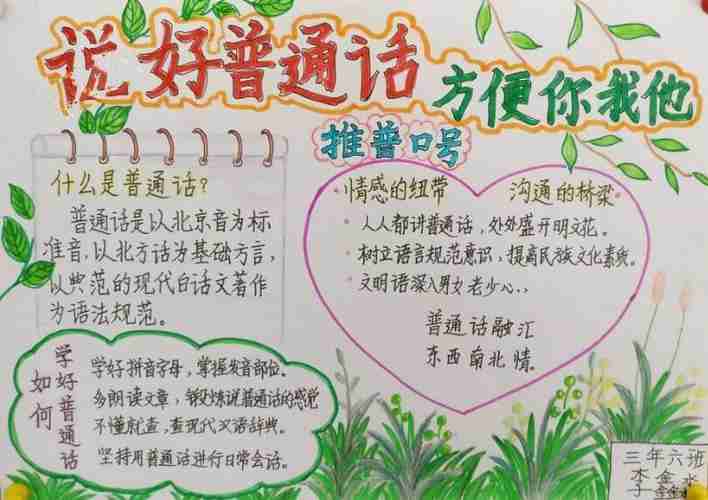 说好普通话
方便你我他
推普口号
什么是普通话?
普通话是以北京音为标
准音,以北方话为基础方言,
以典范的现代白话文著作
为语法规范。
情感的纽带 沟通的桥梁
人人都讲普通话,处处盛开明文花。
树立语言规范意识,提高民族文化素质。
文明语深入男女老少心..
普通话融汇
东西南北情。
如何
学好普通话
学好拼音字母,掌握发音部位。
多朗读文章,锻炼说普通话的感觉
不懂就查,查现代汉语辞典。
坚持用普通话进行日常会话。
三年六班
李金